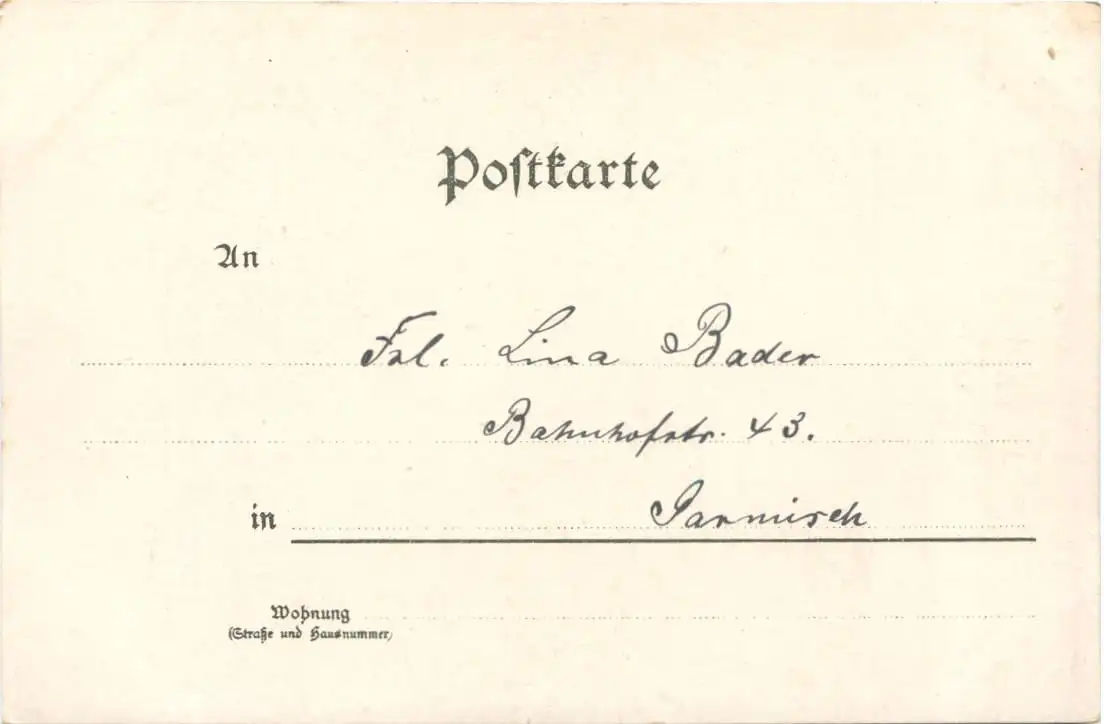 Postkarte
An
Frl. Lina Bader
Bahnhofstr. 43.
in Garmisch
Wohnung
(Straße und Hausnummer)